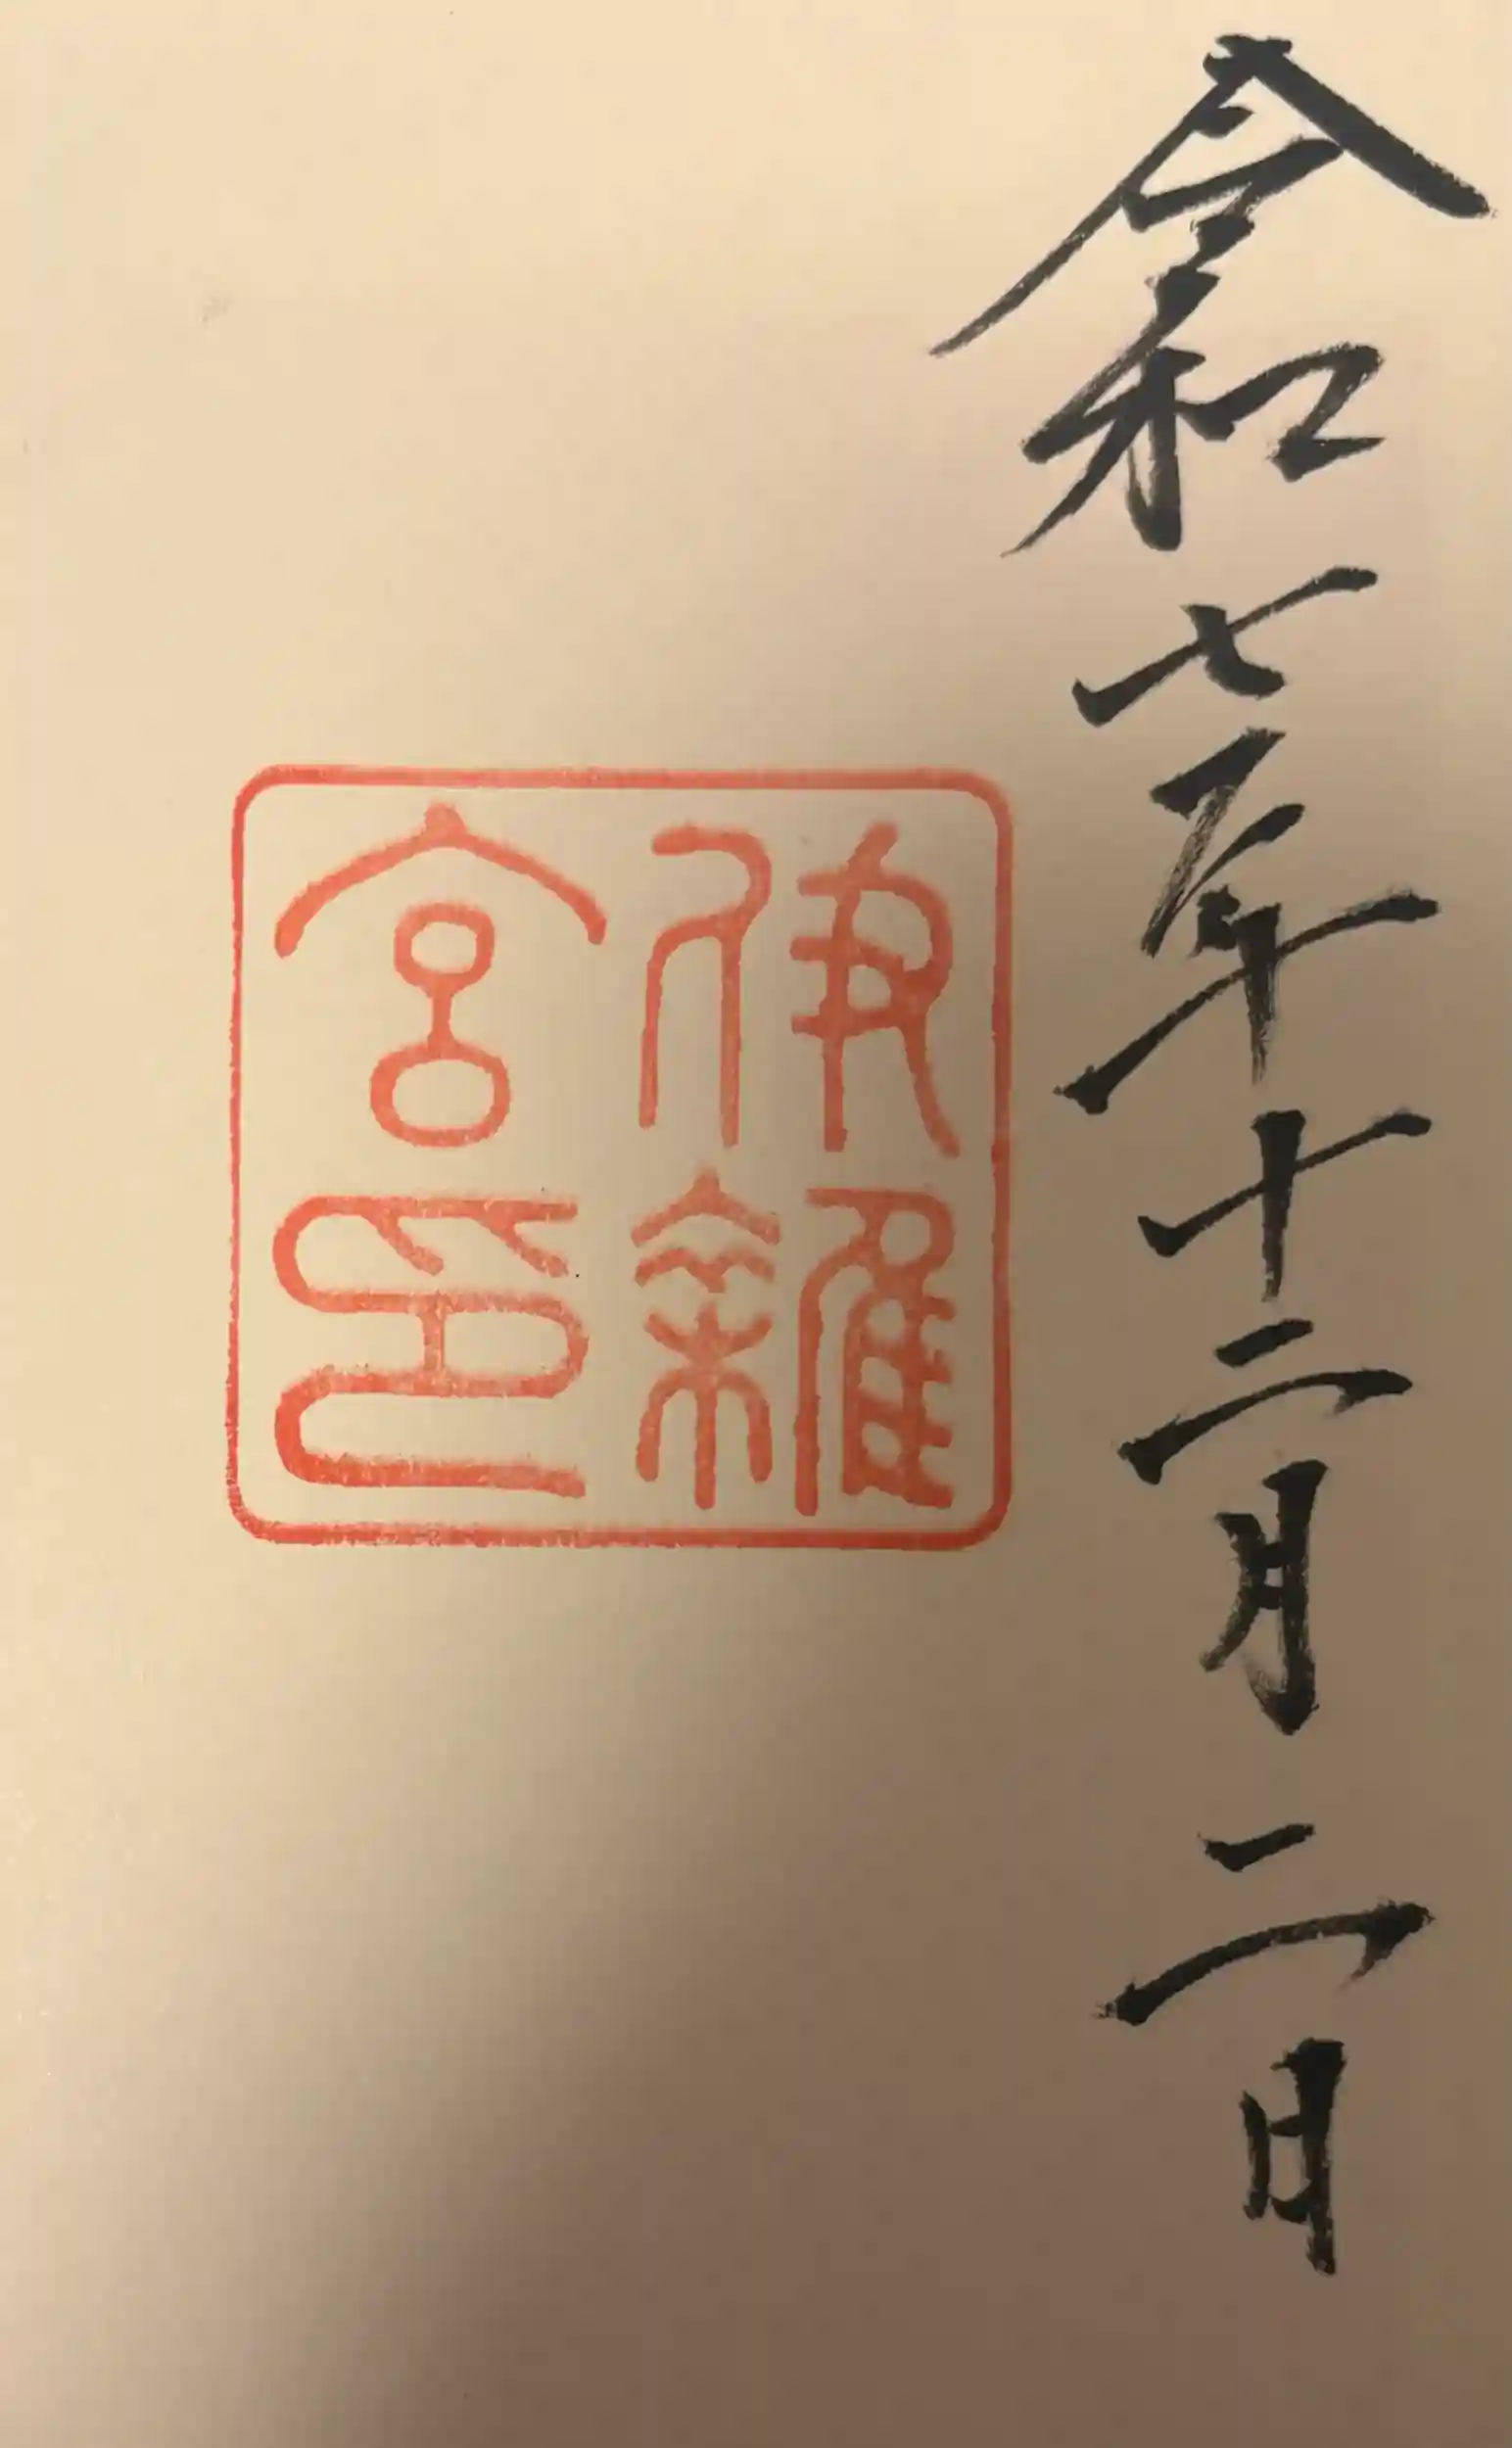 令和七年十二月二日
伊雜
宮印